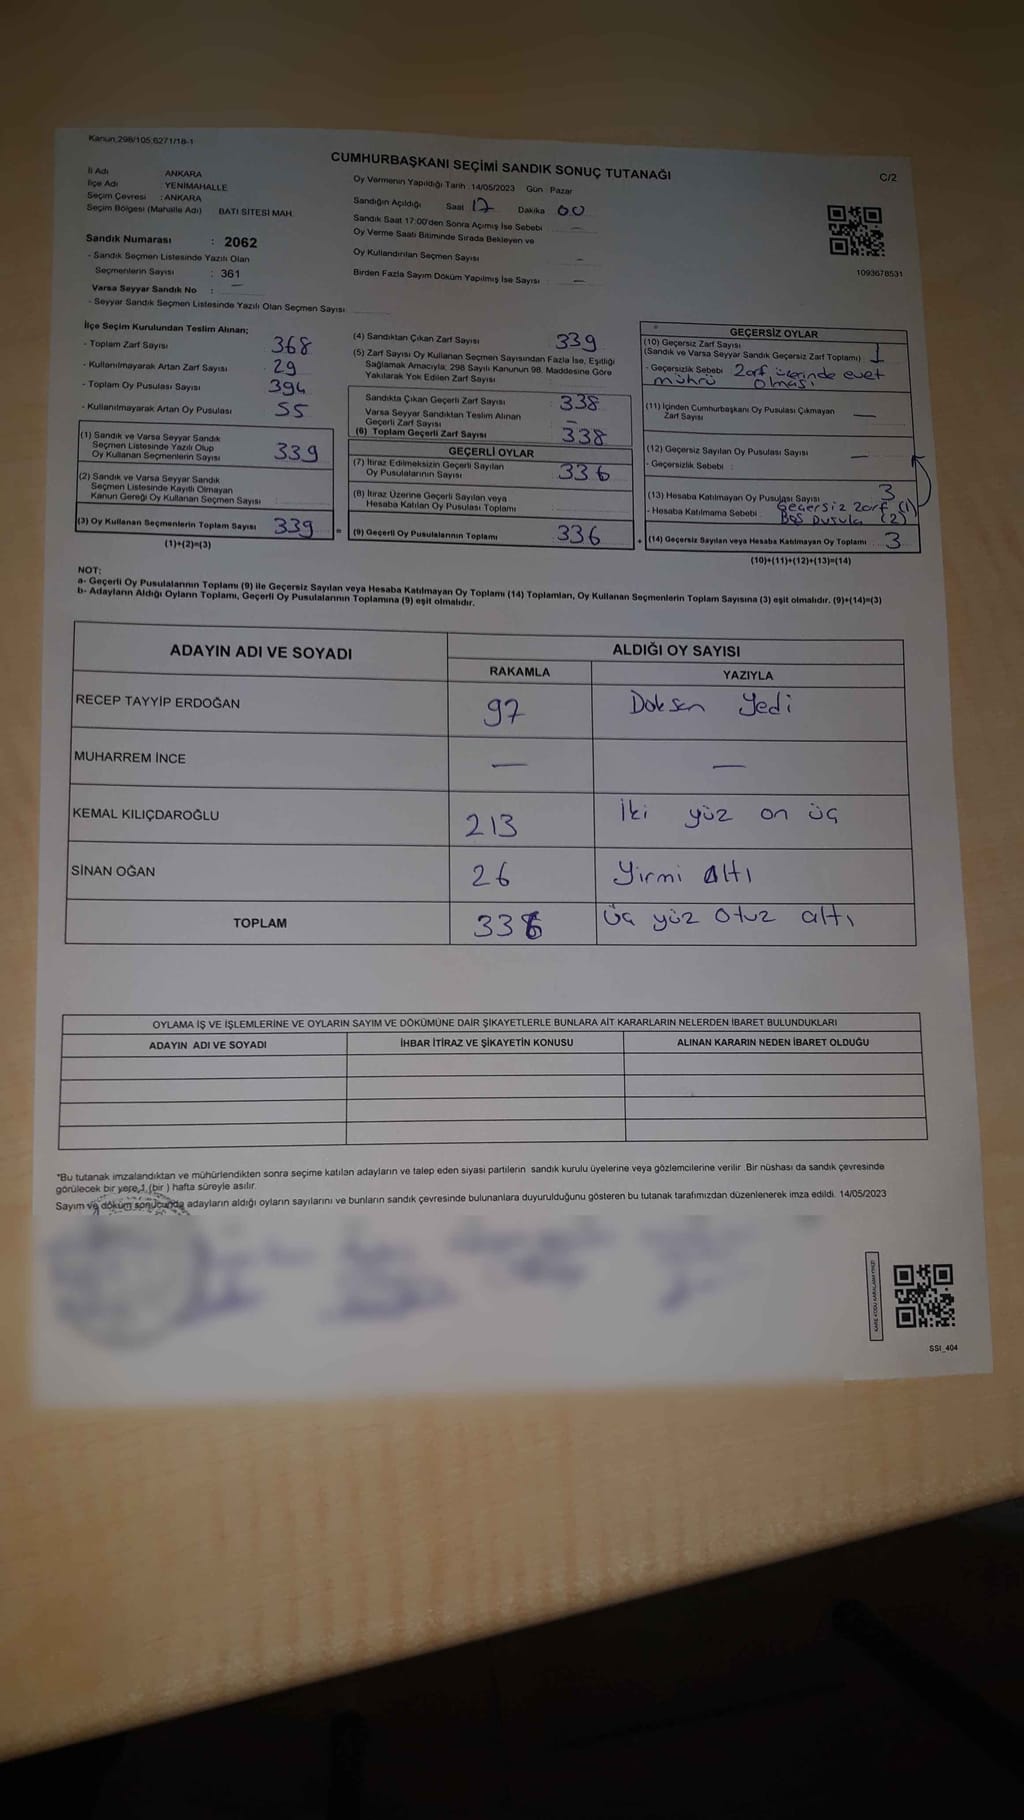 Kanun:298/105,6271/18-1
CUMHURBAŞKANI SEÇİMİ SANDIK SONUÇ TUTANAĞI
C/2
İli Adı ANKARA
İlçe Adı YENİMAHALLE
Seçim Çevresi : ANKARA
Seçim Bölgesi (Mahalle Adı) BATI SİTESİ MAH.
Sandık Numarası : 2062
- Sandık Seçmen Listesinde Yazılı Olan
Seçmenlerin Sayısı : 361
Varsa Seyyar Sandık No : —
- Seyyar Sandık Seçmen Listesinde Yazılı Olan Seçmen Sayısı
Oy Vermenin Yapıldığı Tarih : 14/05/2023 Gün : Pazar
Sandığın Açıldığı Saat 17 Dakika 00
Sandık Saat 17:00'den Sonra Açımış İse Sebebi —
Oy Verme Saati Bitiminde Sırada Bekleyen ve
Oy Kullandırılan Seçmen Sayısı —
Birden Fazla Sayım Döküm Yapılmış İse Sayısı : —
1093678531
İlçe Seçim Kurulundan Teslim Alınan;
- Toplam Zarf Sayısı 368
- Kullanılmayarak Artan Zarf Sayısı 29
- Toplam Oy Pusulası Sayısı 394
- Kullanılmayarak Artan Oy Pusulası 55
(1) Sandık ve Varsa Seyyar Sandık
Seçmen Listesinde Yazılı Olup
Oy Kullanan Seçmenlerin Sayısı 339
(2) Sandık ve Varsa Seyyar Sandık
Seçmen Listesinde Kayıtlı Olmayan
Kanun Gereği Oy Kullanan Seçmen Sayısı
(3) Oy Kullanan Seçmenlerin Toplam Sayısı 339 =
(1)+(2)=(3)
(4) Sandıktan Çıkan Zarf Sayısı 339
(5) Zarf Sayısı Oy Kullanan Seçmen Sayısından Fazla İse, Eşitliği
Sağlamak Amacıyla; 298 Sayılı Kanunun 98. Maddesine Göre
Yakılarak Yok Edilen Zarf Sayısı
Sandıkta Çıkan Geçerli Zarf Sayısı 338
Varsa Seyyar Sandıktan Teslim Alınan
Geçerli Zarf Sayısı —
(6) Toplam Geçerli Zarf Sayısı 338
GEÇERLİ OYLAR
(7) İtiraz Edilmeksizin Geçerli Sayılan
Oy Pusulalarının Sayısı 336
(8) İtiraz Üzerine Geçerli Sayılan veya
Hesaba Katılan Oy Pusulası Toplamı
(9) Geçerli Oy Pusulalarının Toplamı 336 +
GEÇERSİZ OYLAR
(10) Geçersiz Zarf Sayısı
(Sandık ve Varsa Seyyar Sandık Geçersiz Zarf Toplamı) : 1
- Geçersizlik Sebebi Zarf üzerinde evet
mührü olması
(11) İçinden Cumhurbaşkanı Oy Pusulası Çıkmayan
Zarf Sayısı —
(12) Geçersiz Sayılan Oy Pusulası Sayısı —
- Geçersizlik Sebebi :
(13) Hesaba Katılmayan Oy Pusulası Sayısı 3
- Hesaba Katılmama Sebebi Geçersiz zarf (1)
Boş Pusula (2)
(14) Geçersiz Sayılan veya Hesaba Katılmayan Oy Toplamı 3
(10)+(11)+(12)+(13)=(14)
NOT:
a- Geçerli Oy Pusulalarının Toplamı (9) ile Geçersiz Sayılan veya Hesaba Katılmayan Oy Toplamı (14) Toplamları, Oy Kullanan Seçmenlerin Toplam Sayısına (3) eşit olmalıdır. (9)+(14)=(3)
b- Adayların Aldığı Oyların Toplamı, Geçerli Oy Pusulalarının Toplamına (9) eşit olmalıdır.
ADAYIN ADI VE SOYADI
ALDIĞI OY SAYISI
RAKAMLA YAZIYLA
RECEP TAYYİP ERDOĞAN 97 Doksan Yedi
MUHARREM İNCE — —
KEMAL KILIÇDAROĞLU 213 İki yüz on üç
SİNAN OĞAN 26 Yirmi Altı
TOPLAM 336 üç yüz otuz altı
OYLAMA İŞ VE İŞLEMLERİNE VE OYLARIN SAYIM VE DÖKÜMÜNE DAİR ŞİKAYETLERLE BUNLARA AİT KARARLARIN NELERDEN İBARET BULUNDUKLARI
ADAYIN ADI VE SOYADI İHBAR İTİRAZ VE ŞİKAYETİN KONUSU ALINAN KARARIN NEDEN İBARET OLDUĞU
*Bu tutanak imzalandıktan ve mühürlendikten sonra seçime katılan adayların ve talep eden siyasi partilerin sandık kurulu üyelerine veya gözlemcilerine verilir. Bir nüshası da sandık çevresinde
görülecek bir yere 1 (bir ) hafta süreyle asılır.
Sayım ve döküm sonucunda adayların aldığı oyların sayılarını ve bunların sandık çevresinde bulunanlara duyurulduğunu gösteren bu tutanak tarafımızdan düzenlenerek imza edildi. 14/05/2023
SSI_404